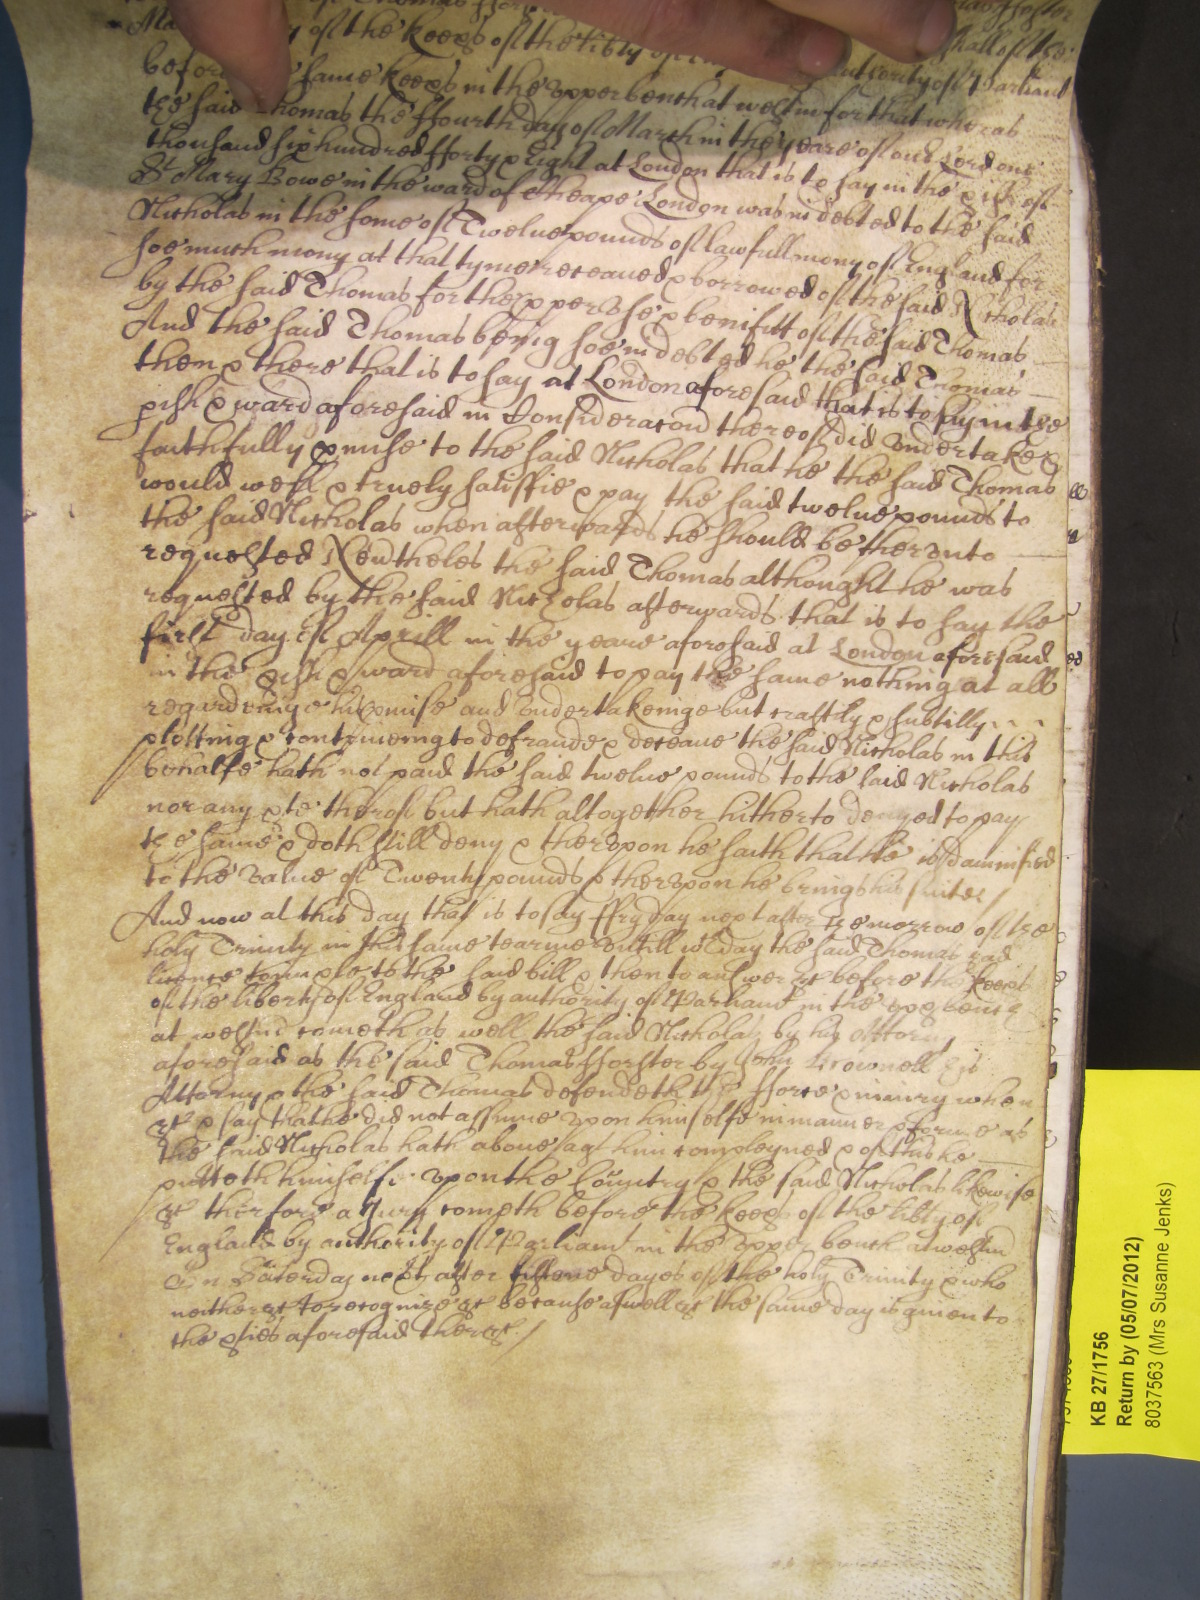 of Thomas
of the keeps of the lib'ty of authority of Parliamt
before same keeps in the upper bench at westm for that whereas
the said Thomas the ffourth day of March in the yeare of our Lord one
thousand six hundred fforty & Eight at London that is to say in the pish of
St Mary Bowe in the ward of Cheape London was indebted to the said
Nicholas in the some of Twelve pounds of lawfull mony of England for
soe much mony at that tyme receaued & borrowed of the said Nicholas
by the said Thomas for the pper use & benifitt of the said Thomas
And the said Thomas being soe indebted he the said Thomas
then & there that is to say at London aforesaid that is to say in the
pish & ward aforesaid in Consideracon thereof did undertake &
faithfully pmise to the said Nicholas that he the said Thomas
would well & truely satisfie & pay the said twelve pounds to
the said Nicholas when afterwards he should be therunto
requested Neu'theles the said Thomas althought he was
requested by the said Nicholas afterwards that is to say the
first day of Aprill in the yeare aforesaid at London aforesaid
in the pish & ward aforesaid to pay the same nothing at all
regarding his pmise and undertakeinge but craftily & subtilly
plotting & contriueing to defraude & deceaue the said Nicholas in this
behalfe hath not paid the said twelve pounds to the said Nicholas
nor any pte therof but hath altogether hitherto denyed to pay
the same & doth still deny & therupon he saith that he is damnified
to the value of Twenty pounds & therupon he brings his suite /
And now at this day that is to say ffryday next after the morrow of the
holy Trinity in this same tearme untill wch day the said Thomas had
licence to imple to the said bill & then to answer &c before the keeps
of the liberty of England by authority of Parliamt in the upp bench
at westm cometh as well the said Nicholas by his Attorny
aforesaid as the said Thomas fforster by John Brownell his
Attorny & the said Thomas defendeth the fforce & iniury when
&c & say that he did not assume upon himselfe in manner & forme as
the said Nicholas hath aboue agt him compleyned & of this he
putteth himselfe upon the Country & the said Nicholas likewise
&c therfore a Jury cometh before the keeps of the lib'ty of
England by authority of Parliamt in the upper bench at westm
on Saterday next after fifteene dayes of the holy Trinity & who
neither &c to recognize &c because aswell &c the same day is giuen to
the pties aforesaid there &c /
KB 27/1756
Return by (05/07/2012)
8037563 (Mrs Susanne Jenks)